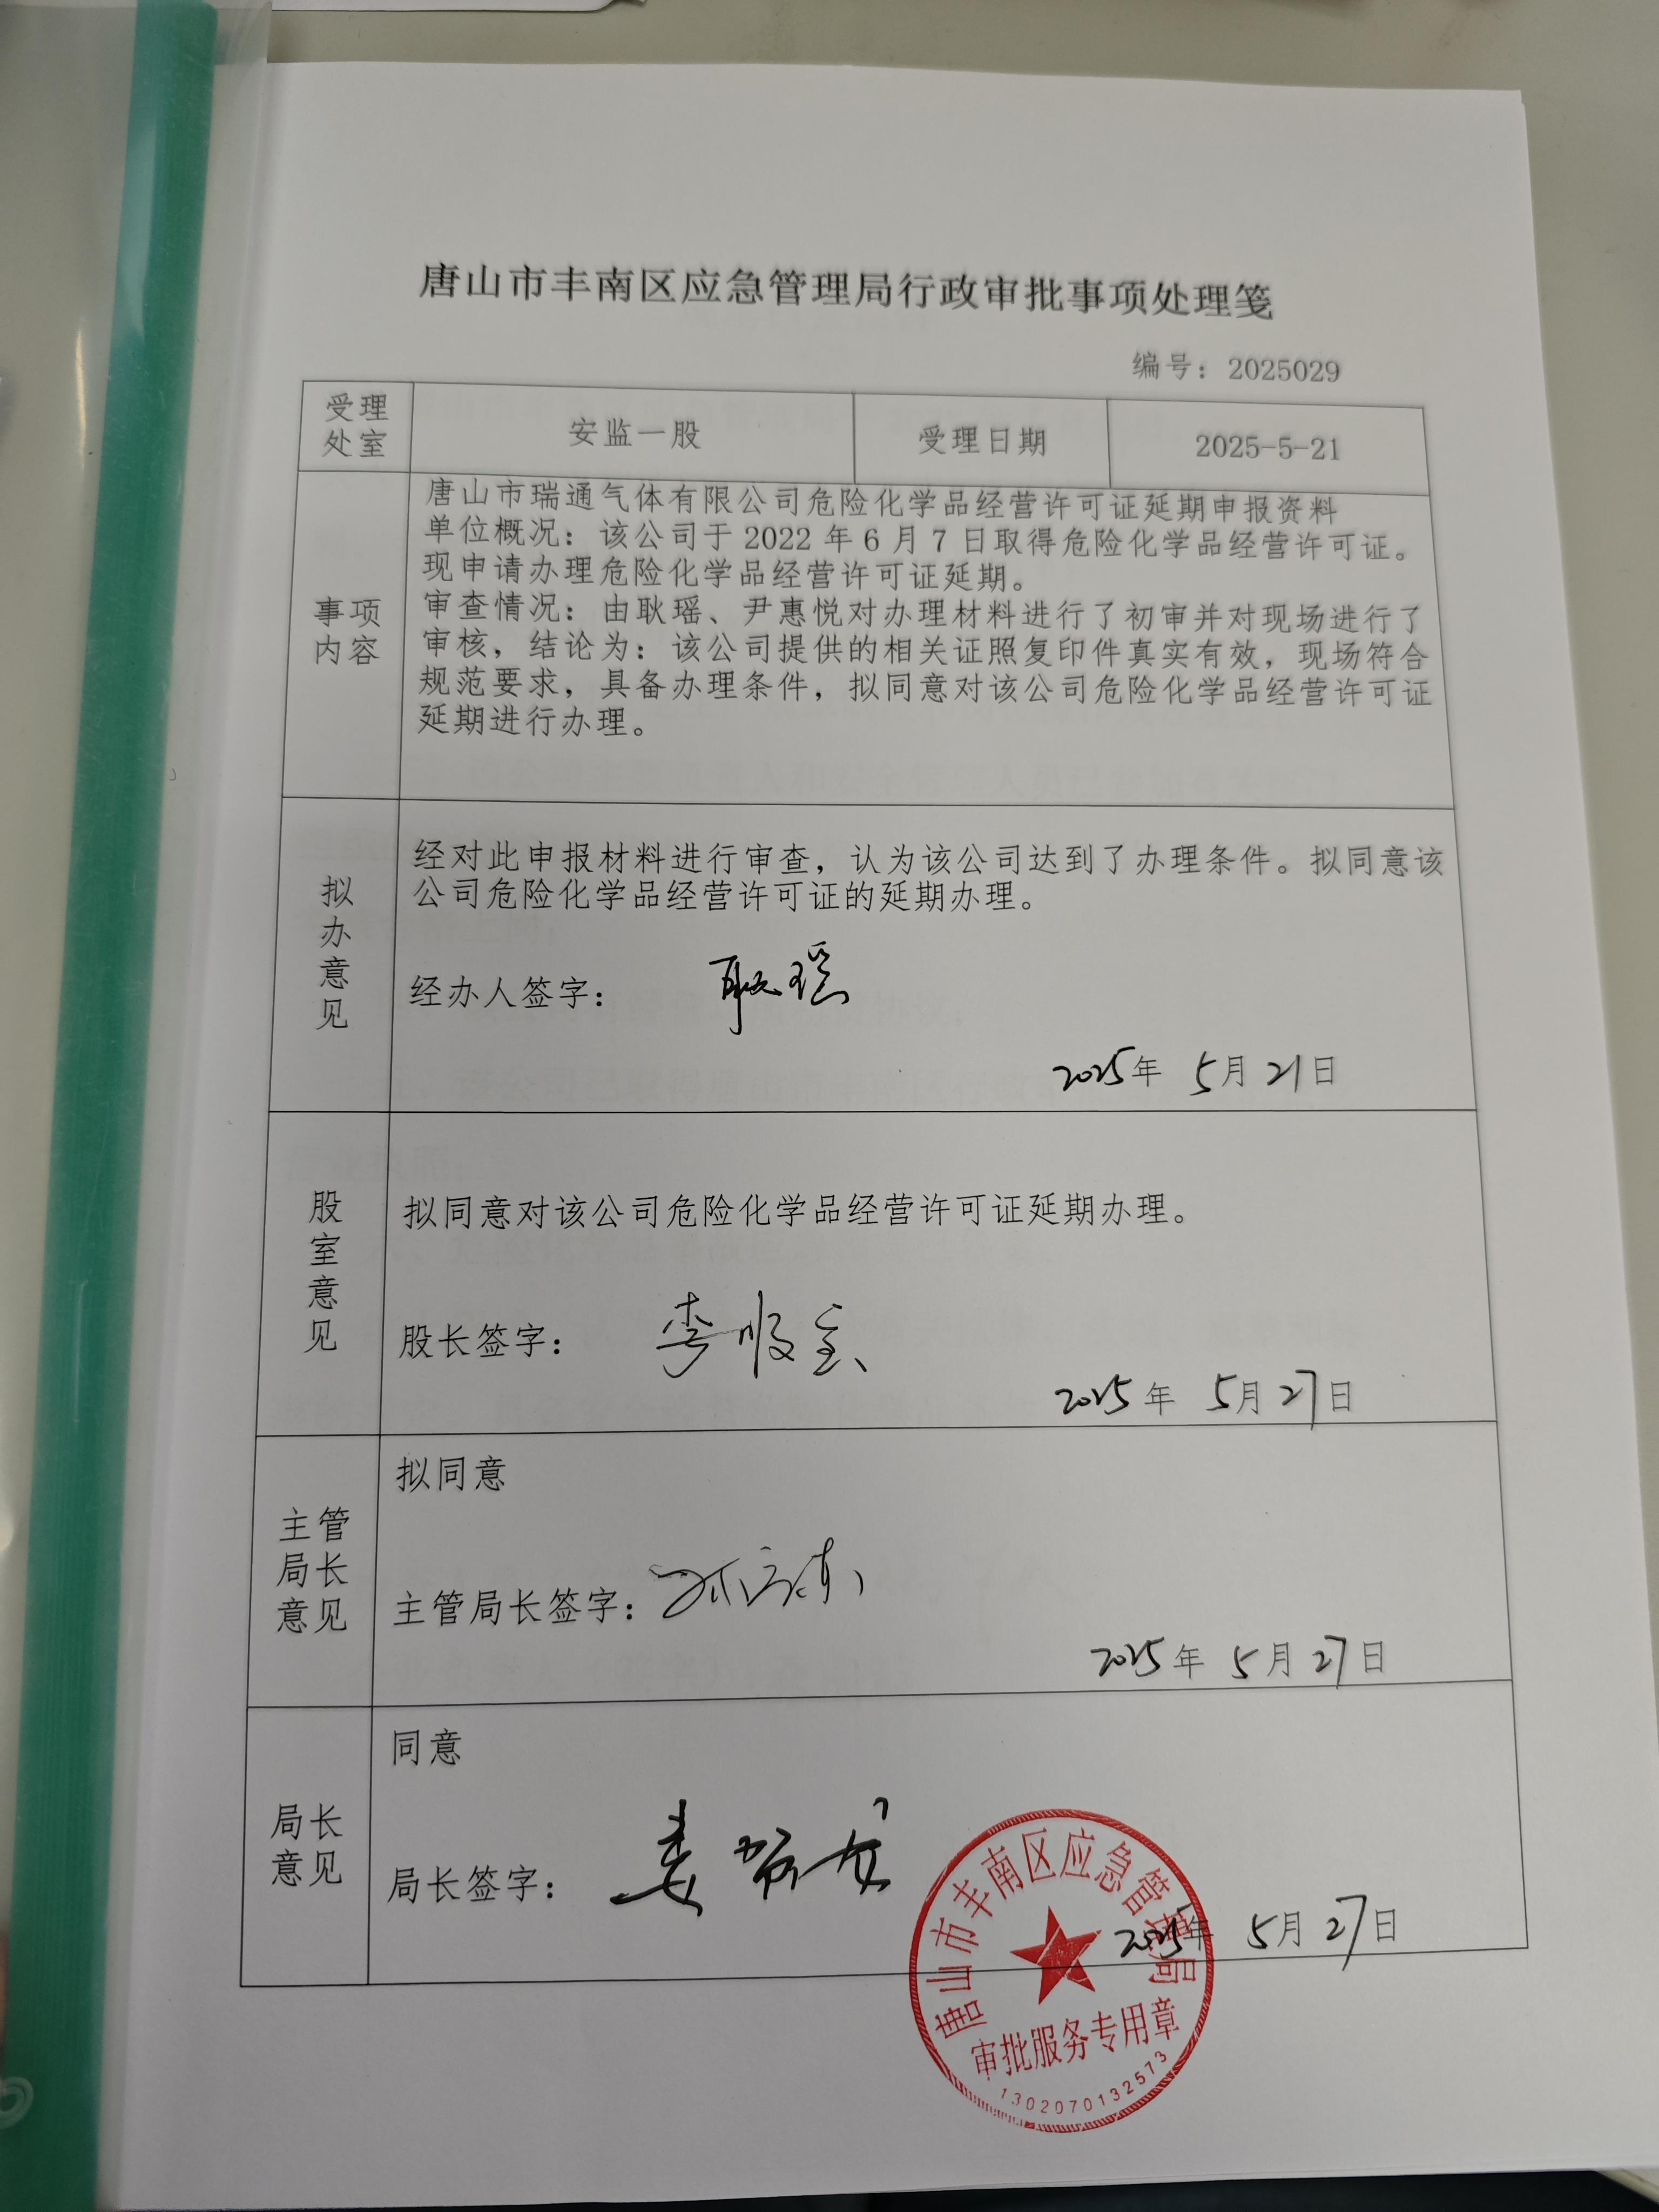 唐山市丰南区应急管理局行政审批事项处理笺
编号：2025029
受理
处室
安监一股
受理日期
2025-5-21
事项
内容
唐山市瑞通气体有限公司危险化学品经营许可证延期申报资料
单位概况：该公司于 2022 年 6 月 7 日取得危险化学品经营许可证。
现申请办理危险化学品经营许可证延期。
审查情况：由耿瑶、尹惠悦对办理材料进行了初审并对现场进行了
审核，结论为：该公司提供的相关证照复印件真实有效，现场符合
规范要求，具备办理条件，拟同意对该公司危险化学品经营许可证
延期进行办理。
拟
办
意
见
经对此申报材料进行审查，认为该公司达到了办理条件。拟同意该
公司危险化学品经营许可证的延期办理。
经办人签字： 耿瑶
2025年 5月21日
股
室
意
见
拟同意对该公司危险化学品经营许可证延期办理。
股长签字： 李顺宝
2025年 5月27日
主管
局长
意见
拟同意
主管局长签字：
2025年 5月27日
局长
意见
同意
局长签字：
2025年 5月27日
唐山市丰南区应急管理局
审批服务专用章
1302070132573